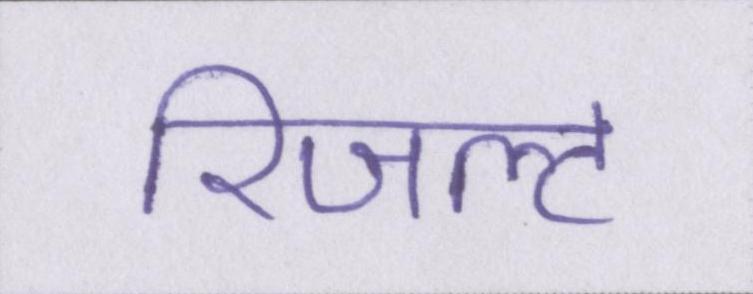 रिजल्ट